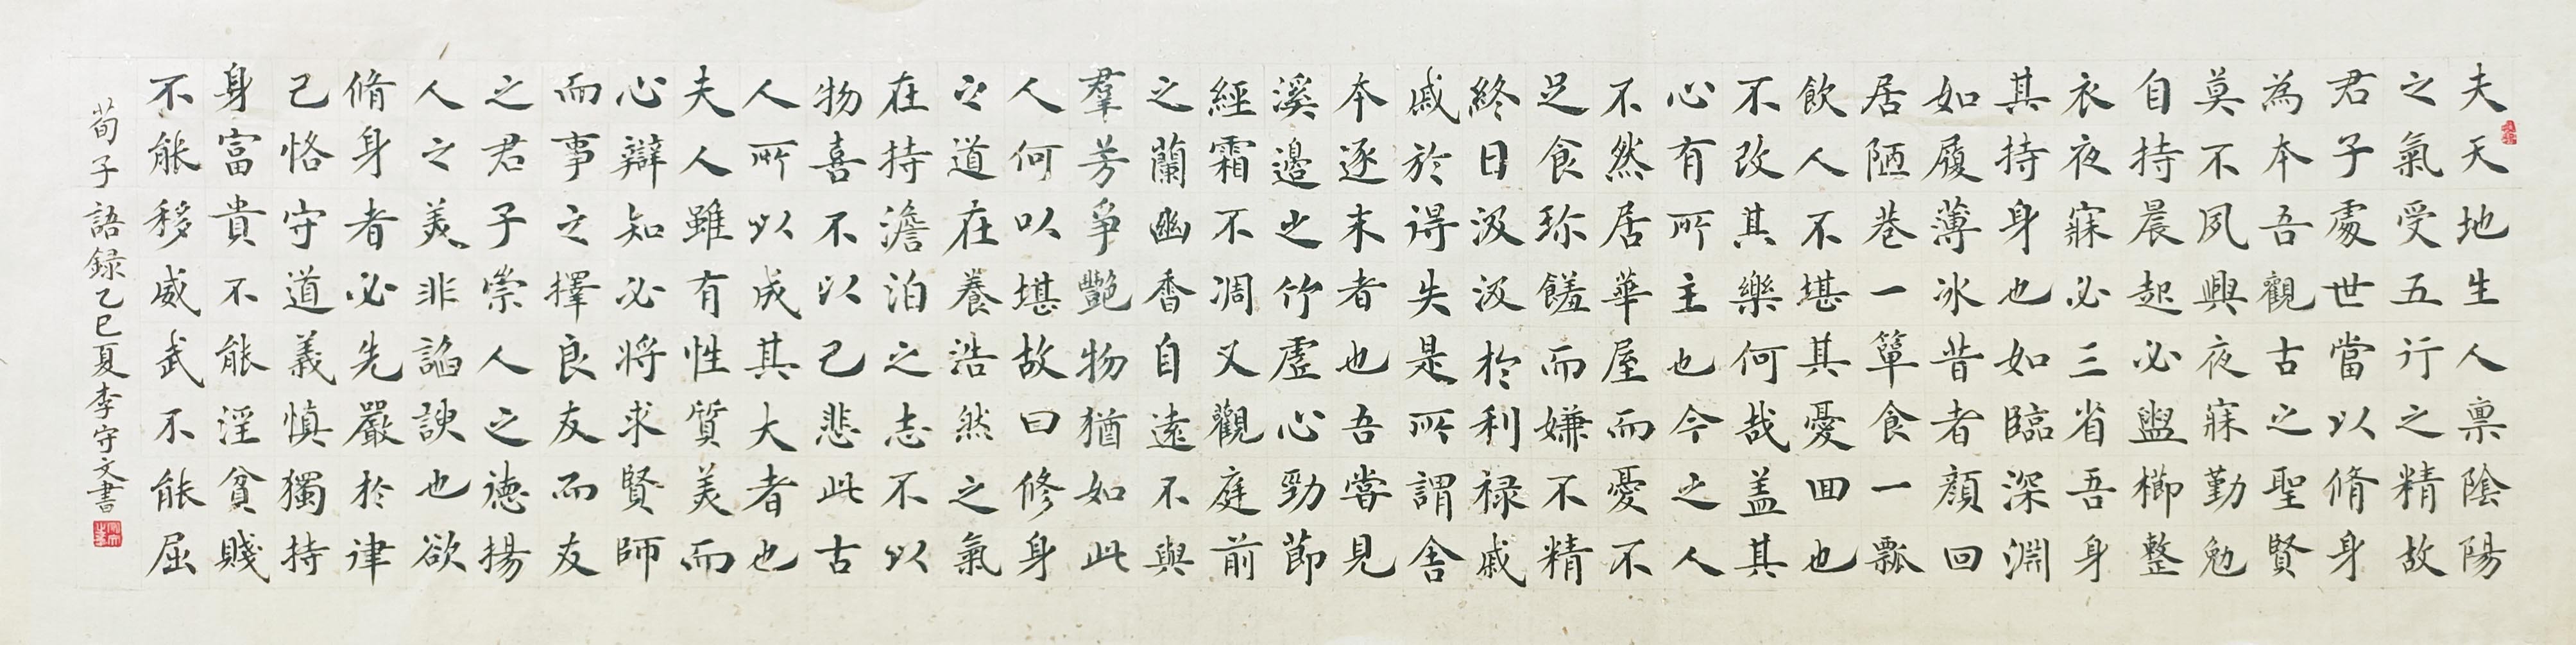 夫天地生人禀陰陽
之氣受五行之精故
君子處世當以脩身
為本吾觀古之聖賢
莫不夙興夜寐勤勉
自持晨起必盥櫛整
衣夜寐必三省吾身
其持身也如臨深淵
如履薄冰昔者顏回
居陋巷一簞食一瓢
飲人不堪其憂回也
不改其樂何哉盖其
心有所主也今之人
不然居華屋而憂不
足食珍饈而嫌不精
終日汲汲於利禄戚
戚於得失是所謂舍
本逐末者也吾嘗見
溪邊之竹虛心勁節
經霜不凋又觀庭前
之蘭幽香自遠不與
羣芳爭艷物猶如此
人何以堪故曰修身
之道在養浩然之氣
在持澹泊之志不以
物喜不以己悲此古
人所以成其大者也
夫人雖有性質美而
心辯知必将求賢師
而事之擇良友而友
之君子崇人之德揚
人之美非諂諛也欲
脩身者必先嚴於律
己恪守道義慎獨持
身富貴不能淫貧賤
不能移威武不能屈
荀子語録乙巳夏李守文書